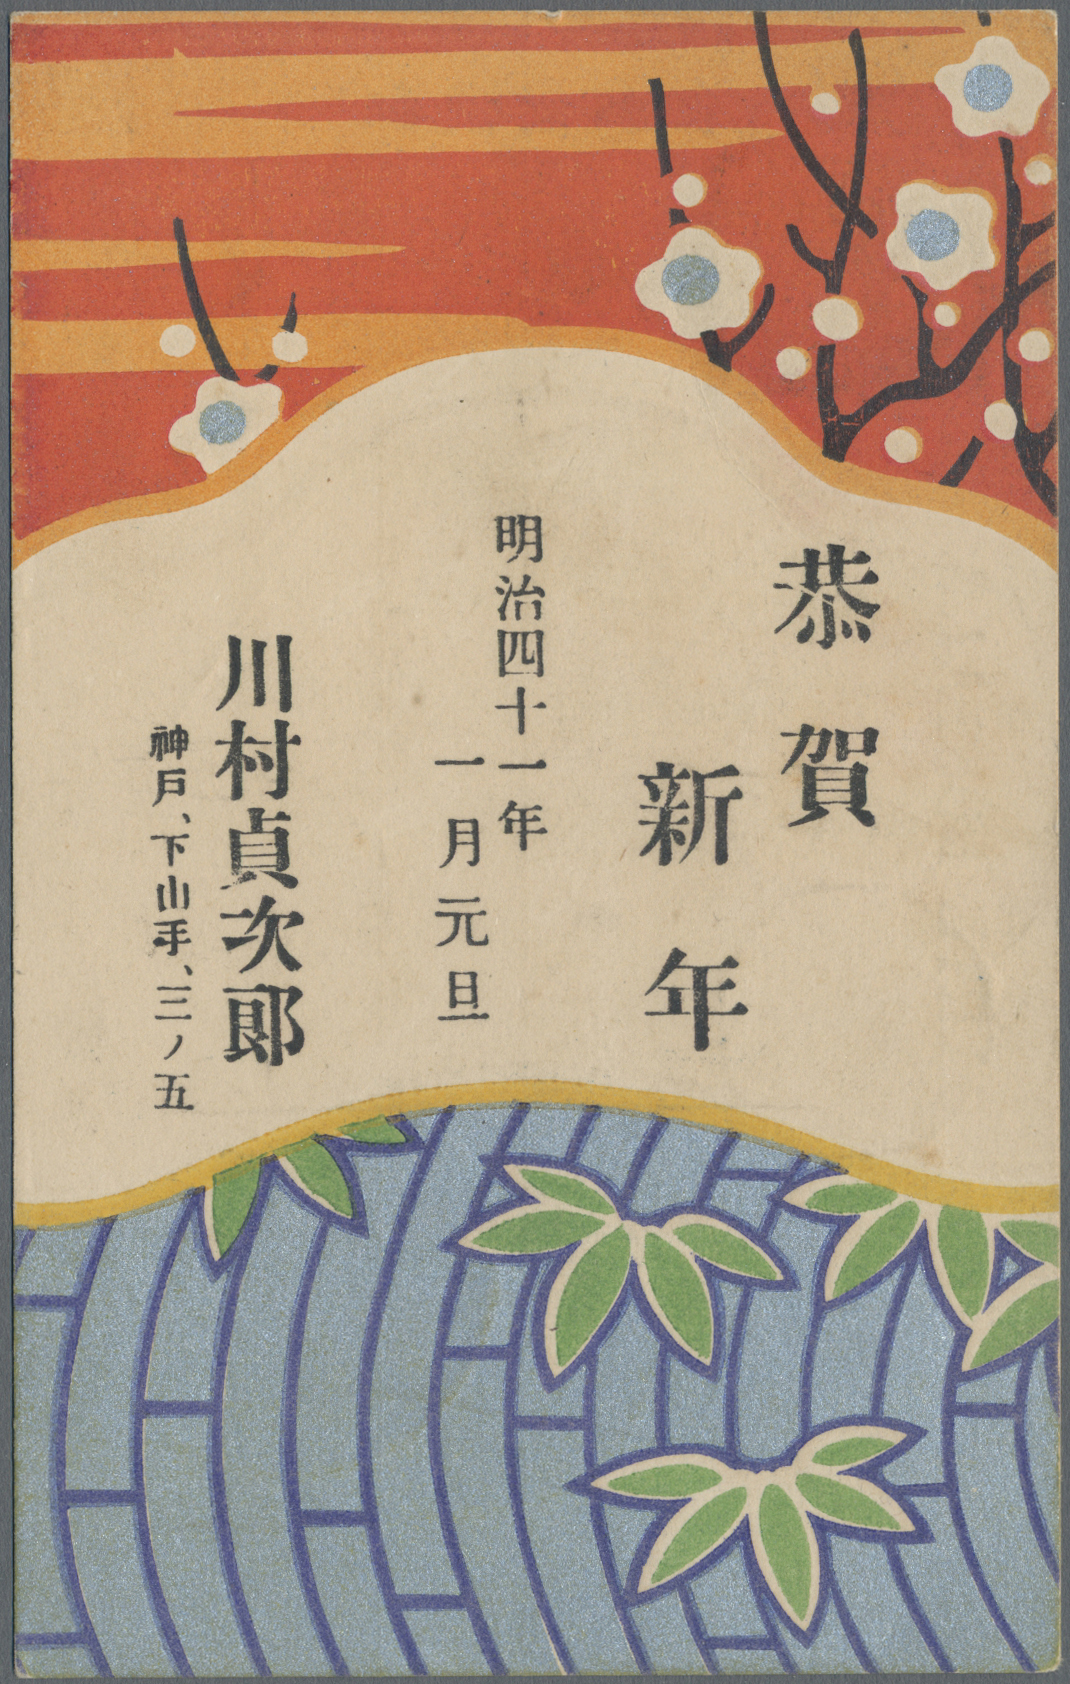 恭賀
新年
明治四十一年
一月元旦
川村貞次郎
神戸、下山手、三ノ五